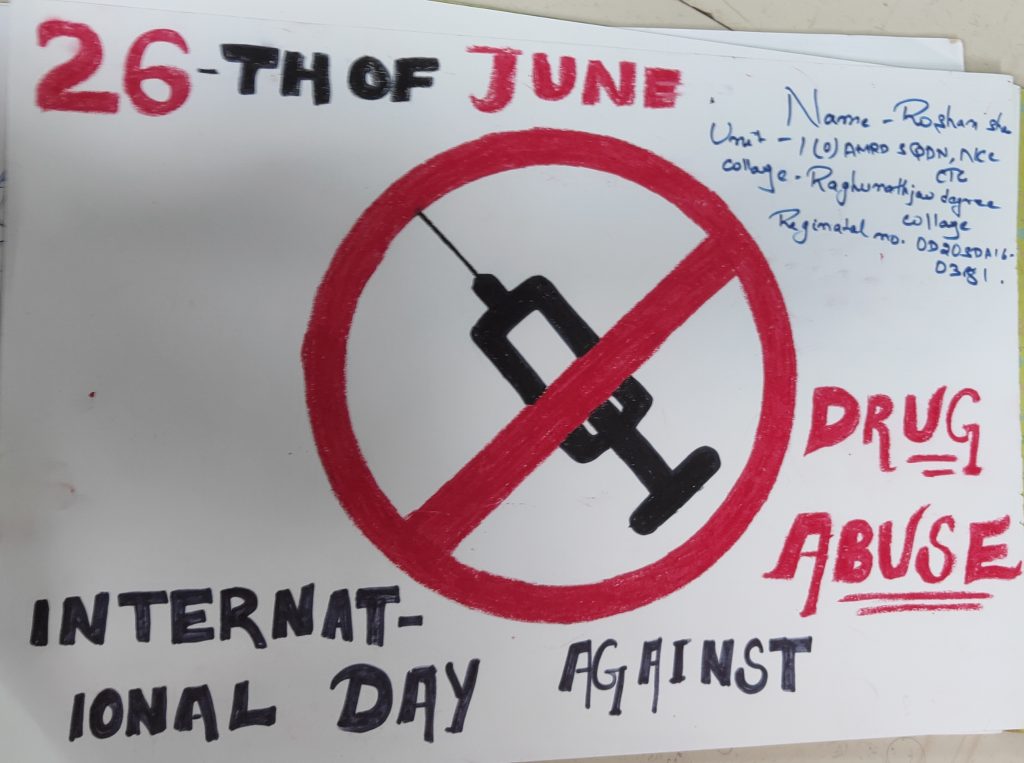 26-TH OF JUNE
Name - Roshan
Unit - 1 (O) AMRD SQDN, NCC
CTC
collage - Raghunathjew degree
collage
Reginatal no. OD20SDA16-
0381.
DRUG
ABUSE
INTERNAT-
IONAL DAY AGAINST